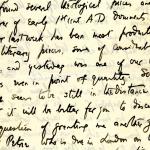 found several theological pieces and
of early 1st cent A.D. documents
last week has been most productive
literary pieces, some of considerable
and yesterday was one of our
even in point of quantity. do
seem to be still in the distance
it will be better for you to
question of granting me another
Petrie who is due in London on